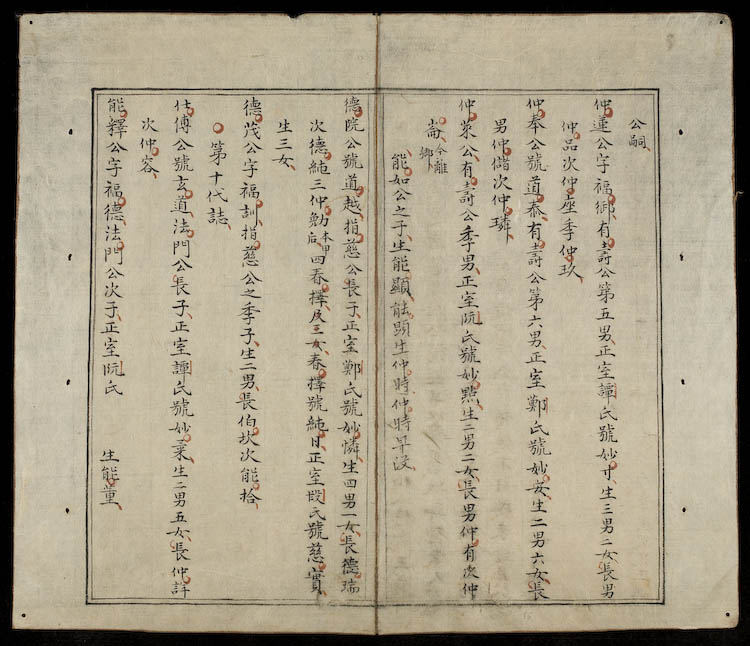 公嗣
仲蓮公字福鄉有壽公第五男正室譚氏號妙寸生三男二女長男
仲品次仲座季仲玖
仲奉公號道泰有壽公第六男正室鄭氏號妙安生二男六女長
男仲儲次仲璘
仲萊公有壽公季男正室阮氏號妙點生二男二女長男仲有次仲
崙今離鄉
能如公之子生能顯能顯生仲時仲時早没
德院公號道越指慈公長子正室鄭氏號妙憐生四男一女長德瑞
次德純三仲勳四春擇及三女春擇號純目正室段氏號慈實
生三女
德茂公字福訓指慈公之季子生二男長伯坎次能拾
第十代誌
仕傅公號玄道法門公長子正室譚氏號妙桒生二男五女長仲詳
次仲容
能釋公字福德法門公次子正室阮氏 生能董